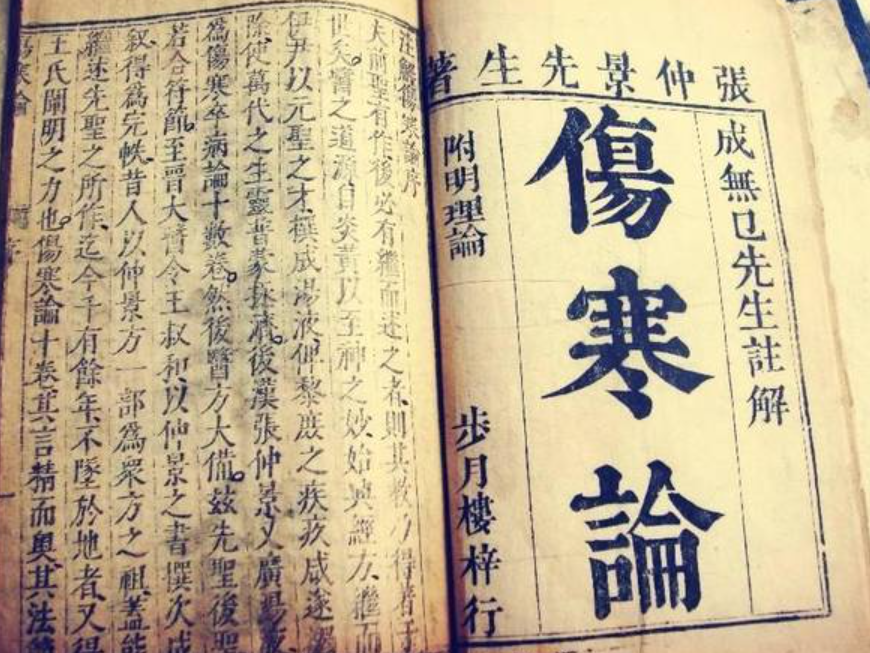 張仲景先生著
成無已先生註解
傷寒論
附明理論
步月樓梓行
注解傷寒論序
夫前聖有作後必有繼而述之者則其教乃得著于
世矣。醫之道源自炎黃以至神之妙始興經方繼而
伊尹以元聖之才撰成湯液俾黎庶之疾疚咸遂蠲
除使萬代之生靈普蒙拯濟。後漢張仲景又廣湯液
為傷寒卒病論十數卷。然後醫方大備。茲先聖後聖
若合符節。至晉大醫令王叔和以仲景之書撰次成
叙得為完帙昔人以仲景方一部為衆方之祖蓋能
繼述先聖之所作迄今千有餘年不墜於地者又得
王氏闡明之力也。傷寒論十卷其言精而奧其法簡
傷寒論